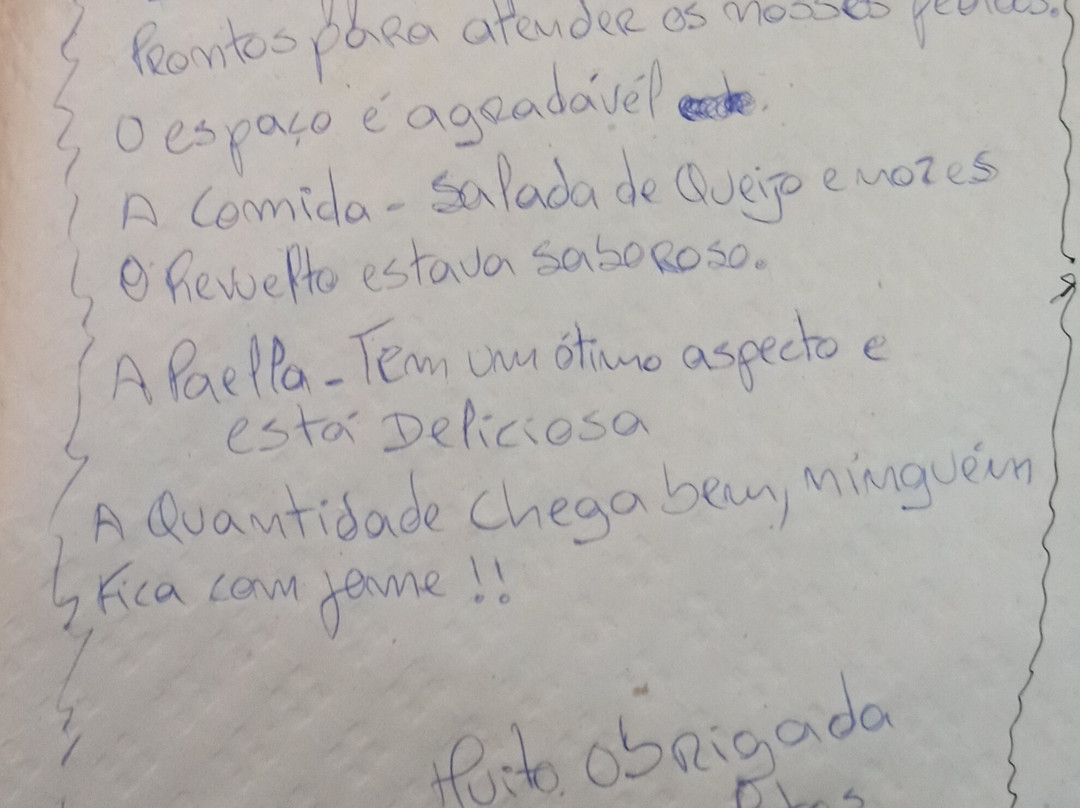 Prontos para atender os nossos pedidos.
O espaço é agradável
A Comida - Salada de Queijo e nozes
O Revuelto estava saboroso.
A Paella - Tem um ótimo aspecto e
está Deliciosa
A Quantidade chega bem, ninguém
fica com fame !!
Muito Obrigada